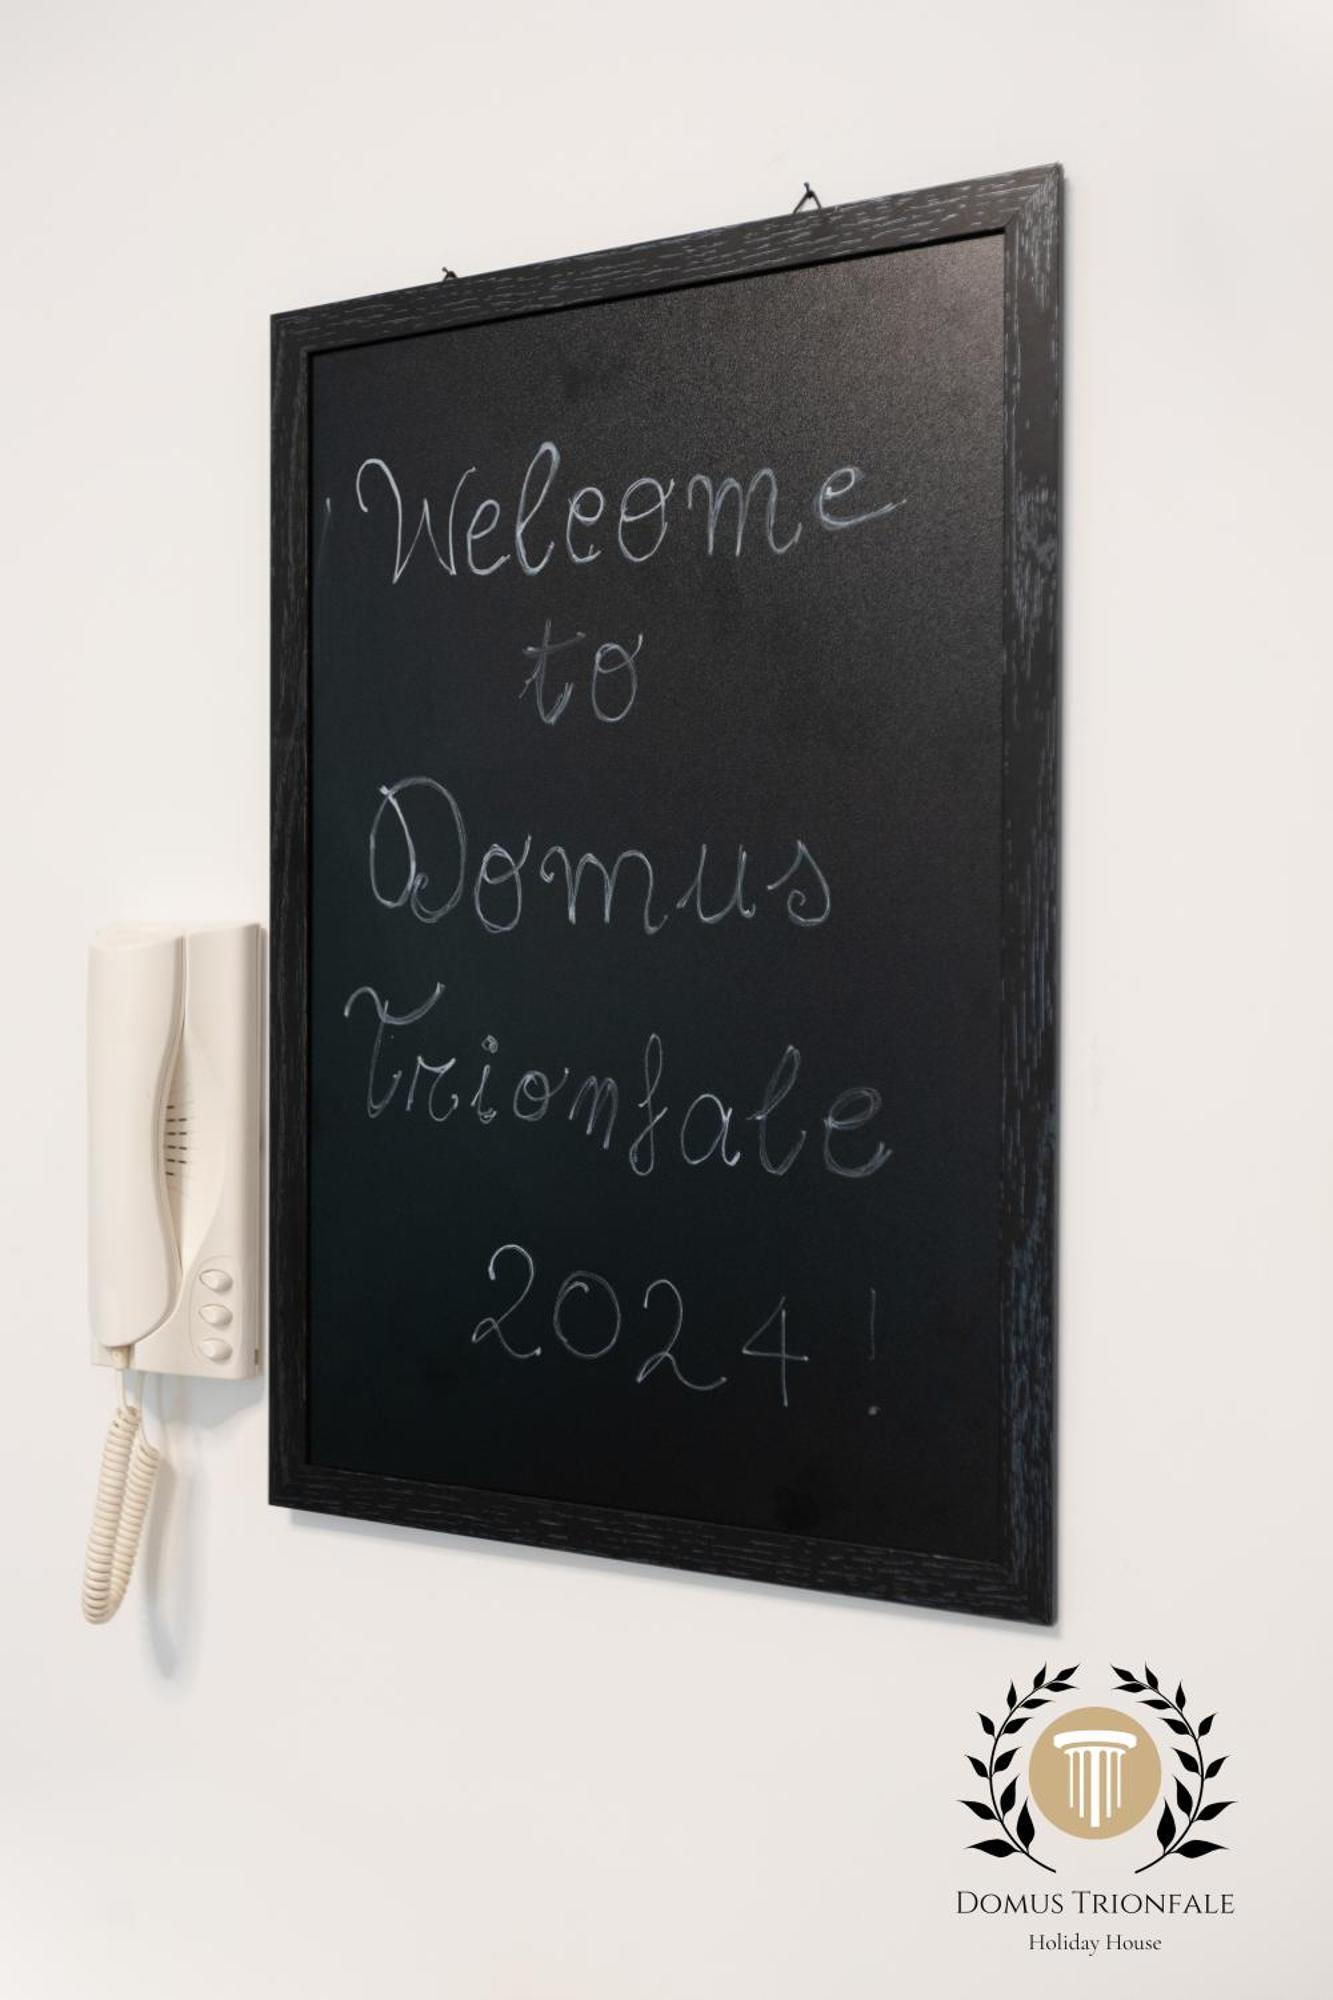 Welcome
to
Domus
Trionfale
2024!
DOMUS TRIONFALE
Holiday House